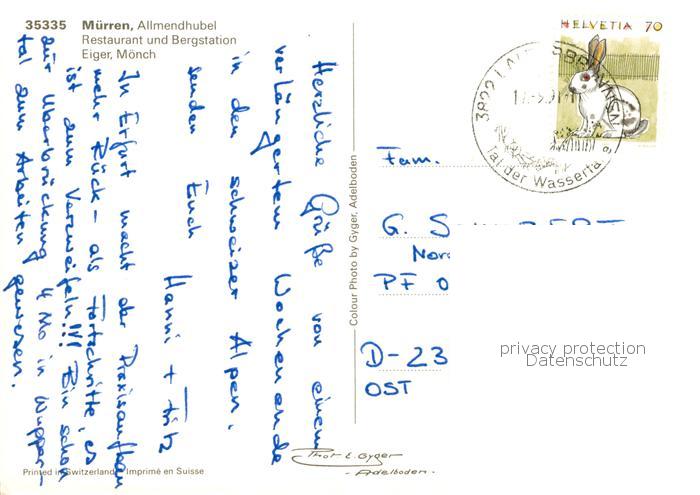 35335 Mürren, Allmendhubel
Restaurant und Bergstation
Eiger, Mönch
Herzliche Grüße von einem
verlängertem Wochenende
in den schweizer Alpen.
senden Euch
Hanni + Fritz
In Erfurt macht der Praxisaufbau
mehr Rück- als Fortschritte, es
ist zum Verzweifeln!!! Bin schon
zur Überbrückung 4 Mo in Wupper-
tal zum Arbeiten gewesen.
Printed in Switzerland Imprimé en Suisse
Colour Photo by Gyger, Adelboden
Thor E. Gyger
- Adelboden -
HELVETIA 70
3822 LAUTERBRUNNEN
Tal der Wasserfälle
Fam.
G. S
PF 0
D-23
OST
privacy protection
Datenschutz